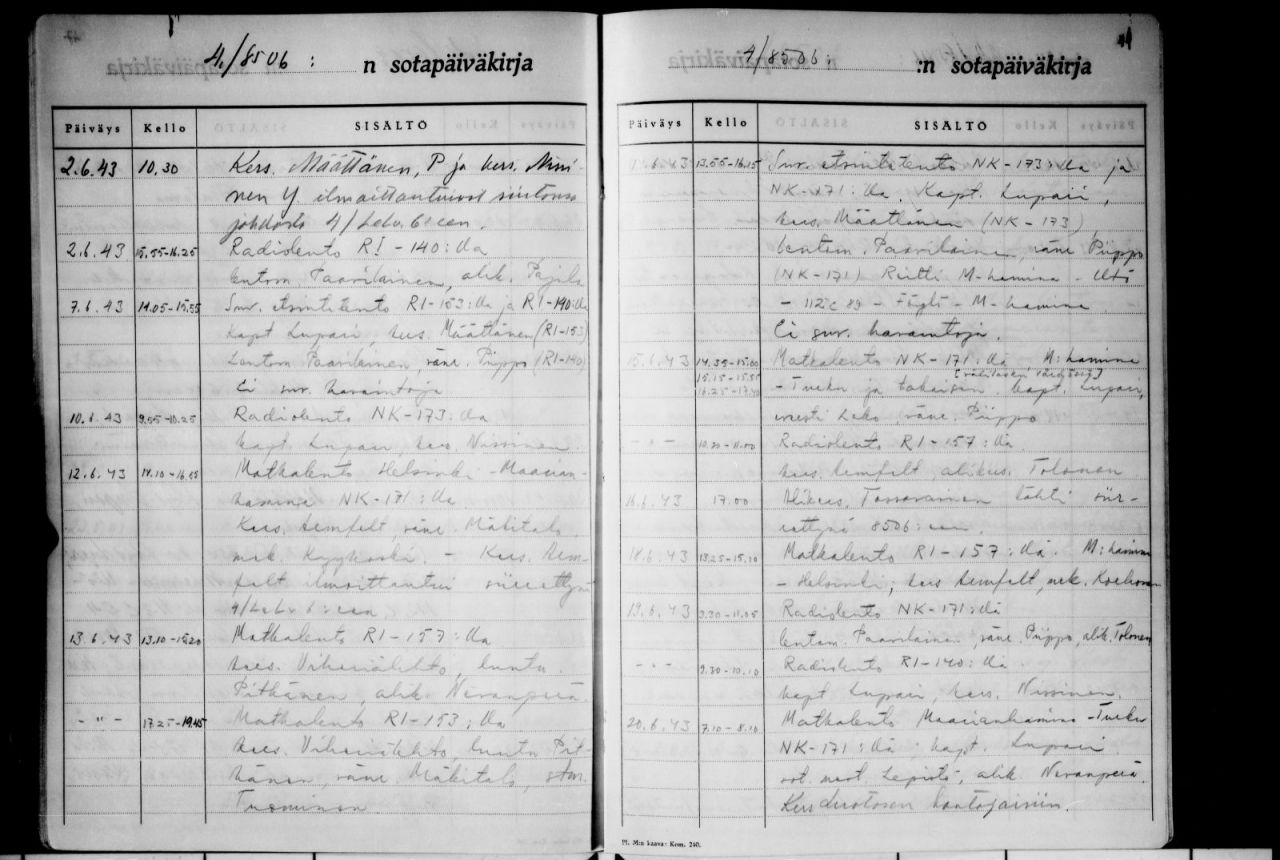 4./8506 : n sotapäiväkirja
Päiväys Kello SISÄLTÖ
2.6.43 10.30 Kers. Määttänen, P ja kers. Nissi-
nen Y. ilmoittautuivat
4/Lelv. 6:een.
2.6.43 15.55-16.25 Radiolento RI-140:llä
lentom. Paarilainen, alik.
7.6.43 14.05-15.55 Suv. etsintälento RI-153:llä ja RI-140:llä
kapt Lupari, kers. Määttänen (RI-153)
Lentom Paarilainen, väne. Piippo (RI-140)
Ei suv. havaintoja
10.6.43 9.55-10.25 Radiolento NK-173:lla
kapt. Lupari, kers. Nissinen.
12.6.43 14.10-16.25 Matkalento Helsinki - Maarian-
hamina NK-171:lla
Kers. Armfelt, väne. Mäkitalo,
mek. - Kers. Arm-
felt ilmoittautui siirrettynä
4/Lelv 6:een
13.6.43 13.10-15.20 Matkalento RI-157:llä
kers. Viheriälehto, luutn.
Pitkänen, alik. Nevanperä
- " - 17.25-19.45 Matkalento RI-153:llä
kers. Viheriälehto, luutn Pit-
känen, väne. Mäkitalo,
Tuominen
4/8506: :n sotapäiväkirja
Päiväys Kello SISÄLTÖ
.6.43 13.55-16.15 Suv. etsintälento NK-173:lla ja
NK-171:lla. Kapt. Lupari,
kers. Määttänen (NK-173)
lentom. Paarilainen, väne Piippo
(NK-171) Reitti M-hamina - Utö
- 112 c 89 - Föglö - M-hamina
Ei suv. havaintoja.
15.6.43 14.35-15.00 Matkalento NK-171:llä M:hamina
15.15-15.55
16.25-17.40 - Turku ja takaisin. kapt. Lupari,
Leko, väne. Piippo
- " - 10.20-11.00 Radiolento RI-157:llä
kers. Armfelt, alikers. Tolonen
16.6.43 17.00 Alikers. Tossavainen lähti siir-
rettynä 8506:een
18.6.43 13.25-15.10 Matkalento RI-157:llä. M:hamina
- Helsinki; kers Armfelt, mek. Korhonen
19.6.43 9.30-11.05 Radiolento NK-171:llä
lentom. Paarilainen, väne. Piippo, alik. Tolonen
- " - 9.30-10.10 Radiolento RI-140:llä
kapt Lupari, kers. Nissinen.
20.6.43 7.10-8.10 Matkalento Maarianhamina - Turku
NK-171:llä; kapt. Lupari
sot. mest. Lepistö, alik Nevanperä.
Kers
Pl. M:n kaava: Kom. 240.